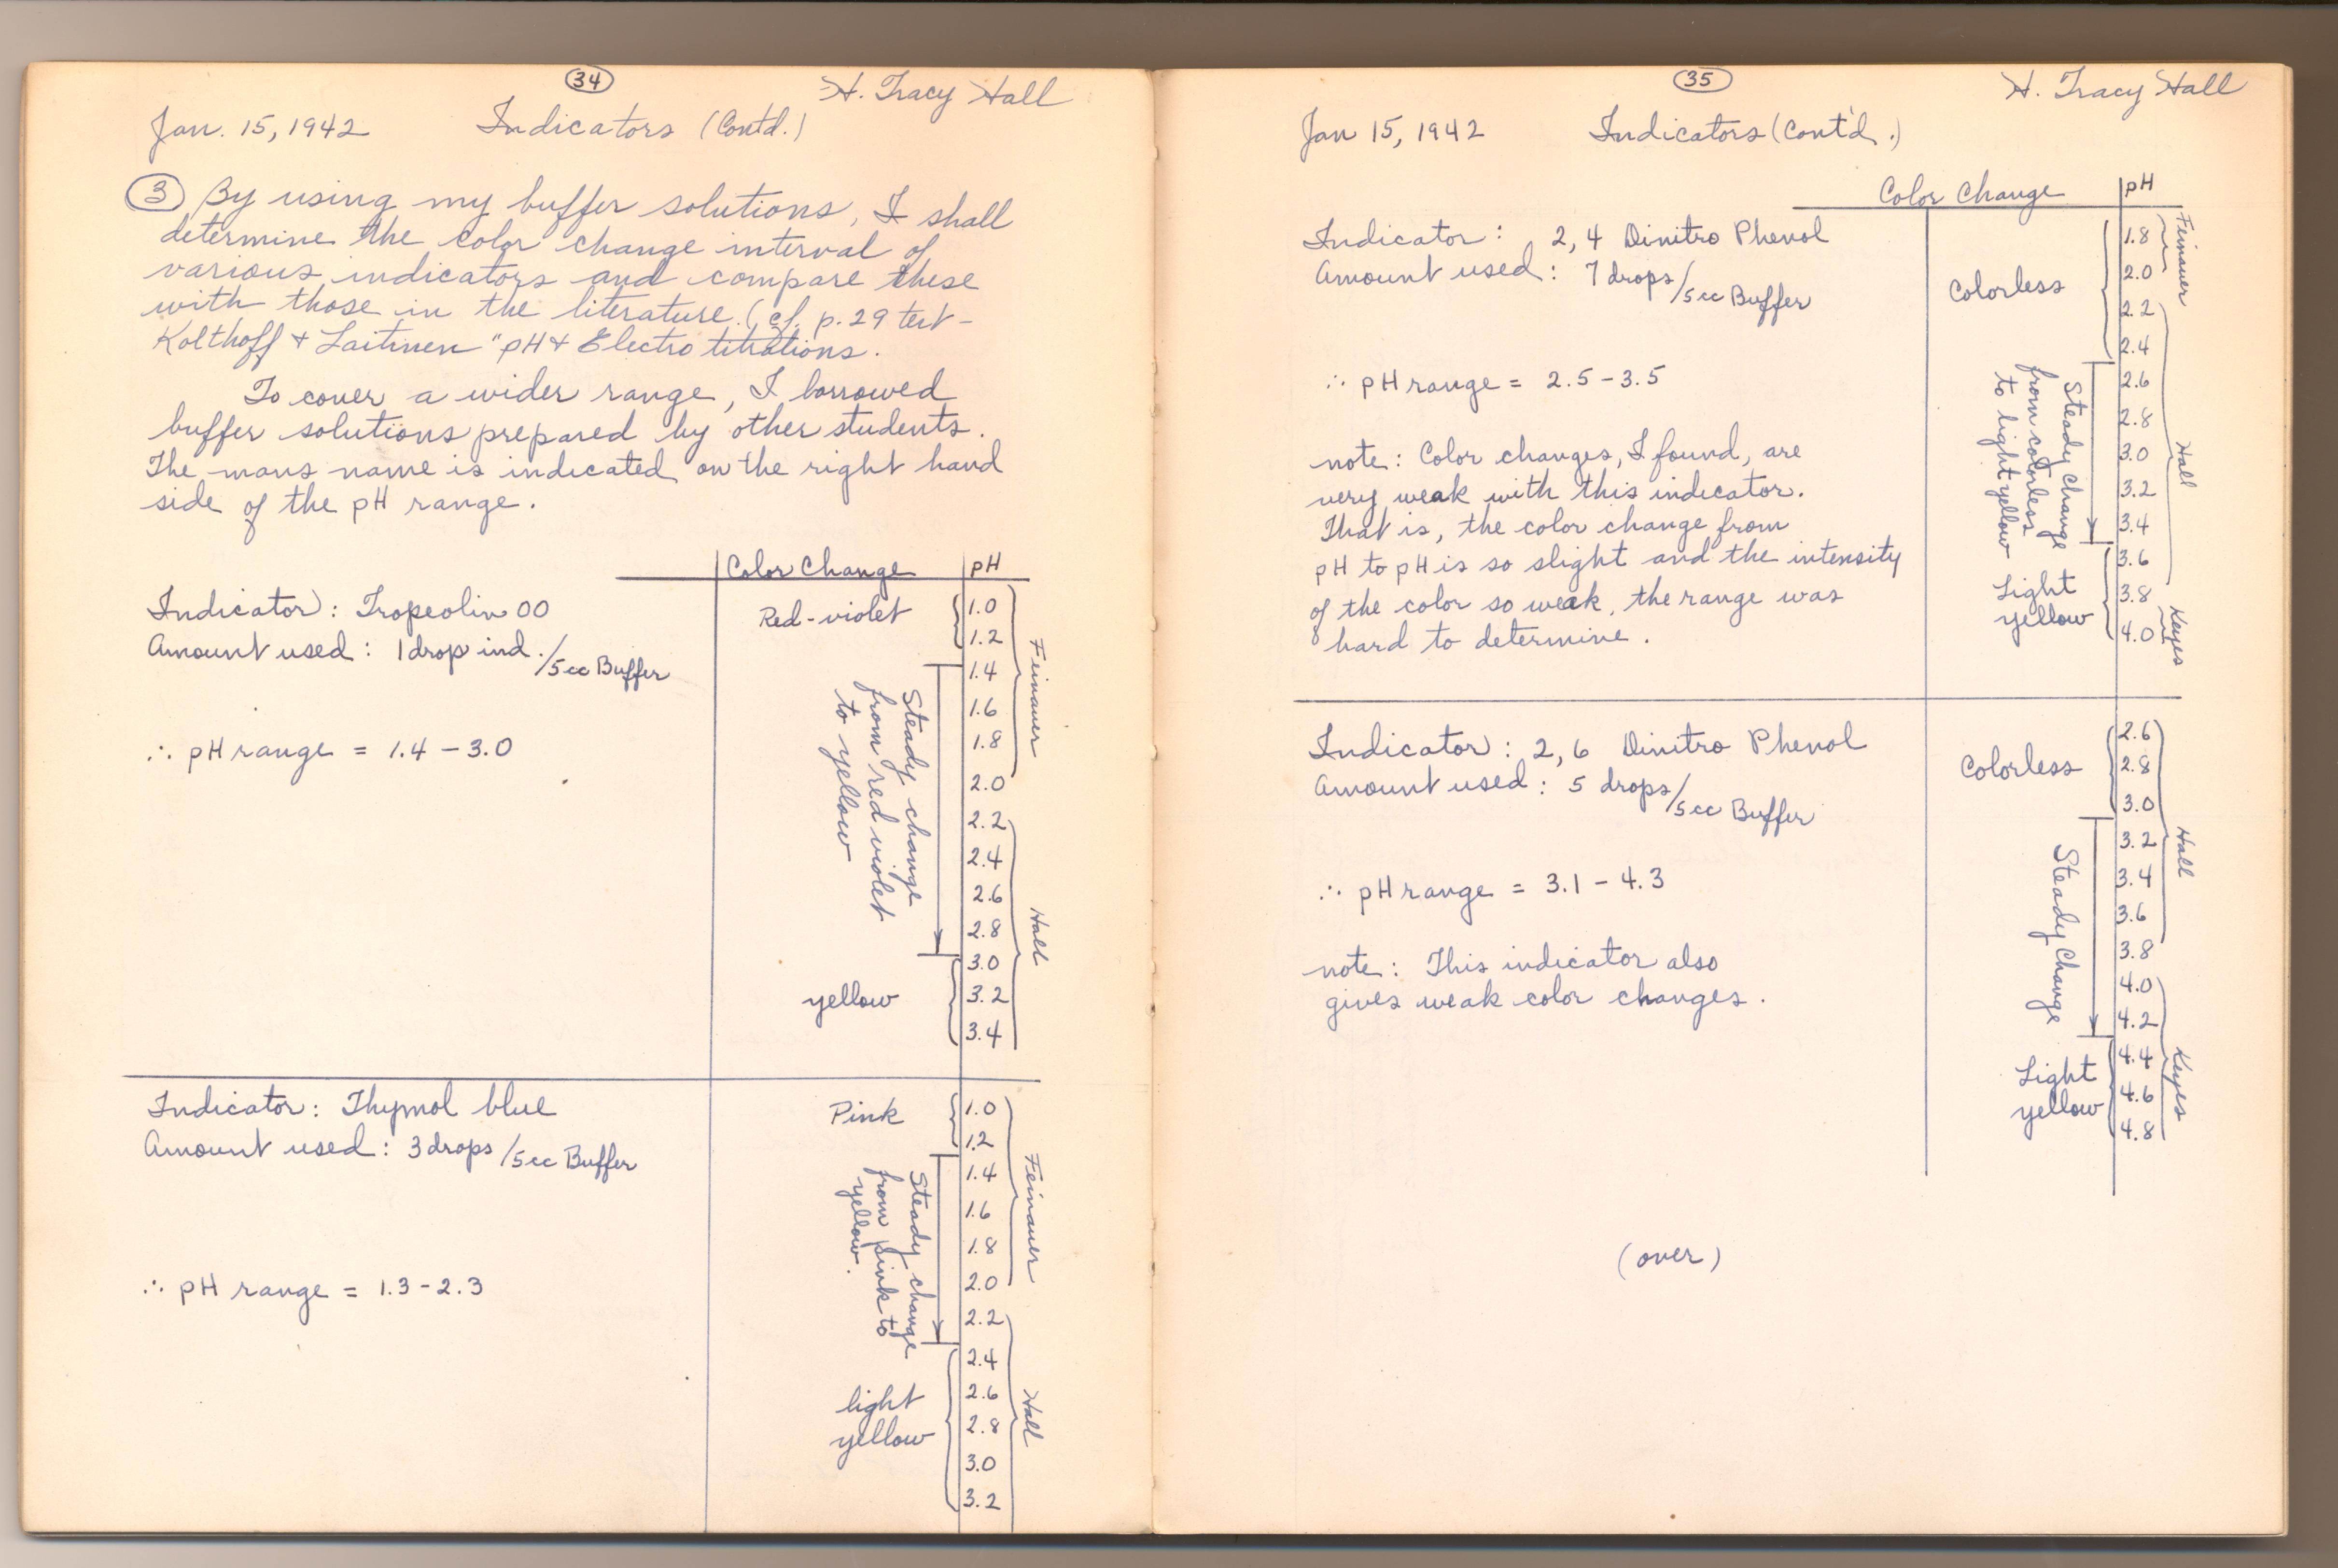 34
H. Tracy Hall
Jan. 15, 1942 Indicators (Contd.)
3 By using my buffer solutions, I shall
determine the color change interval of
various indicators and compare these
with those in the literature. (cf. p. 29 text -
Kolthoff + Laitinen "pH + Electro titrations.
To cover a wider range, I borrowed
buffer solutions prepared by other students.
The mans name is indicated on the right hand
side of the pH range.
Color Change pH
Indicator : Tropeolin 00
Amount used : 1 drop ind. /5cc Buffer
∴ pH range = 1.4 - 3.0
Red-violet
Steady change
from red violet
to yellow
yellow
1.0
1.2
1.4
1.6
1.8
2.0
2.2
2.4
2.6
2.8
3.0
3.2
3.4
Feinauer
Hall
Indicator : Thymol blue
Amount used : 3 drops /5cc Buffer
∴ pH range = 1.3 - 2.3
Pink
Steady change
from pink to
yellow.
light
yellow
1.0
1.2
1.4
1.6
1.8
2.0
2.2
2.4
2.6
2.8
3.0
3.2
Feinauer
Hall
35
H. Tracy Hall
Jan 15, 1942 Indicators (Cont'd.)
Color Change pH
Indicator : 2,4 Dinitro Phenol
Amount used : 7 drops/5cc Buffer
∴ pH range = 2.5 - 3.5
note : Color changes, I found, are
very weak with this indicator.
That is, the color change from
pH to pH is so slight and the intensity
of the color so weak, the range was
hard to determine.
Colorless
Steady Change
from colorless
to light yellow
Light
yellow
1.8
2.0
2.2
2.4
2.6
2.8
3.0
3.2
3.4
3.6
3.8
4.0
Feinauer
Hall
Keyes
Indicator : 2,6 Dinitro Phenol
Amount used : 5 drops/5cc Buffer
∴ pH range = 3.1 - 4.3
note : This indicator also
gives weak color changes.
Colorless
Steady Change
Light
yellow
2.6
2.8
3.0
3.2
3.4
3.6
3.8
4.0
4.2
4.4
4.6
4.8
Hall
Keyes
(over)